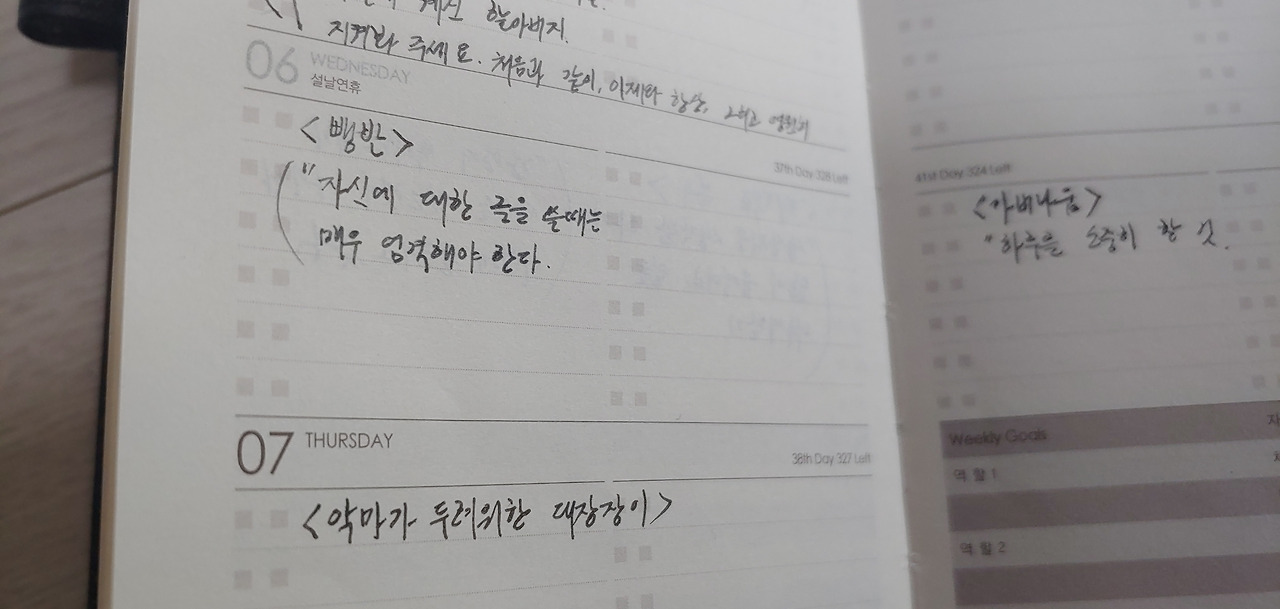 계신 할아버지.
지켜봐 주세요. 처음과 같이, 이제와 항상, 그리고 영원히
06 WEDNESDAY
설날연휴
37th Day 328 Left
<빵반>
"자신에 대한 글을 쓸때는
매우 엄격해야 한다.
07 THURSDAY
38th Day 327 Left
<악마가 두려워한 대장장이>
41st Day 324 Left
<아비나움>
"하루를 소중히 할 것.
Weekly Goals
역할 1
역할 2